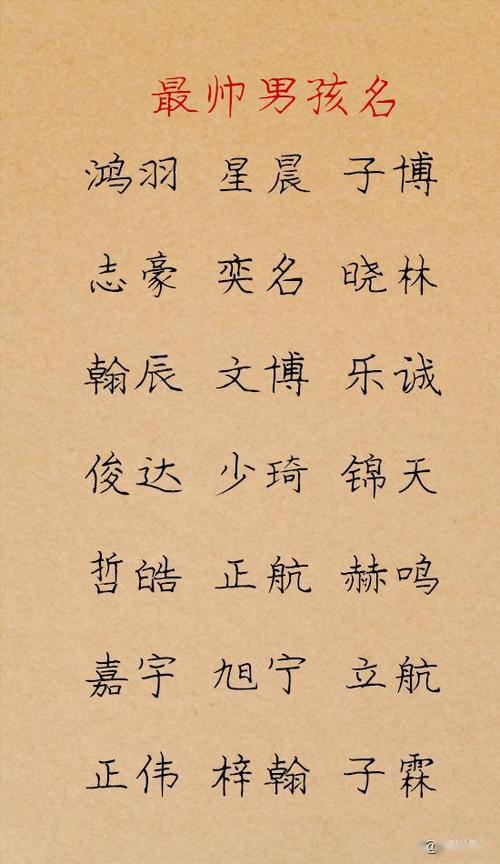 最帅男孩名
鸿羽 星晨 子博
志豪 奕名 晓林
翰辰 文博 乐诚
俊达 少琦 锦天
哲皓 正航 赫鸣
嘉宇 旭宁 立航
正伟 梓翰 子霖
@